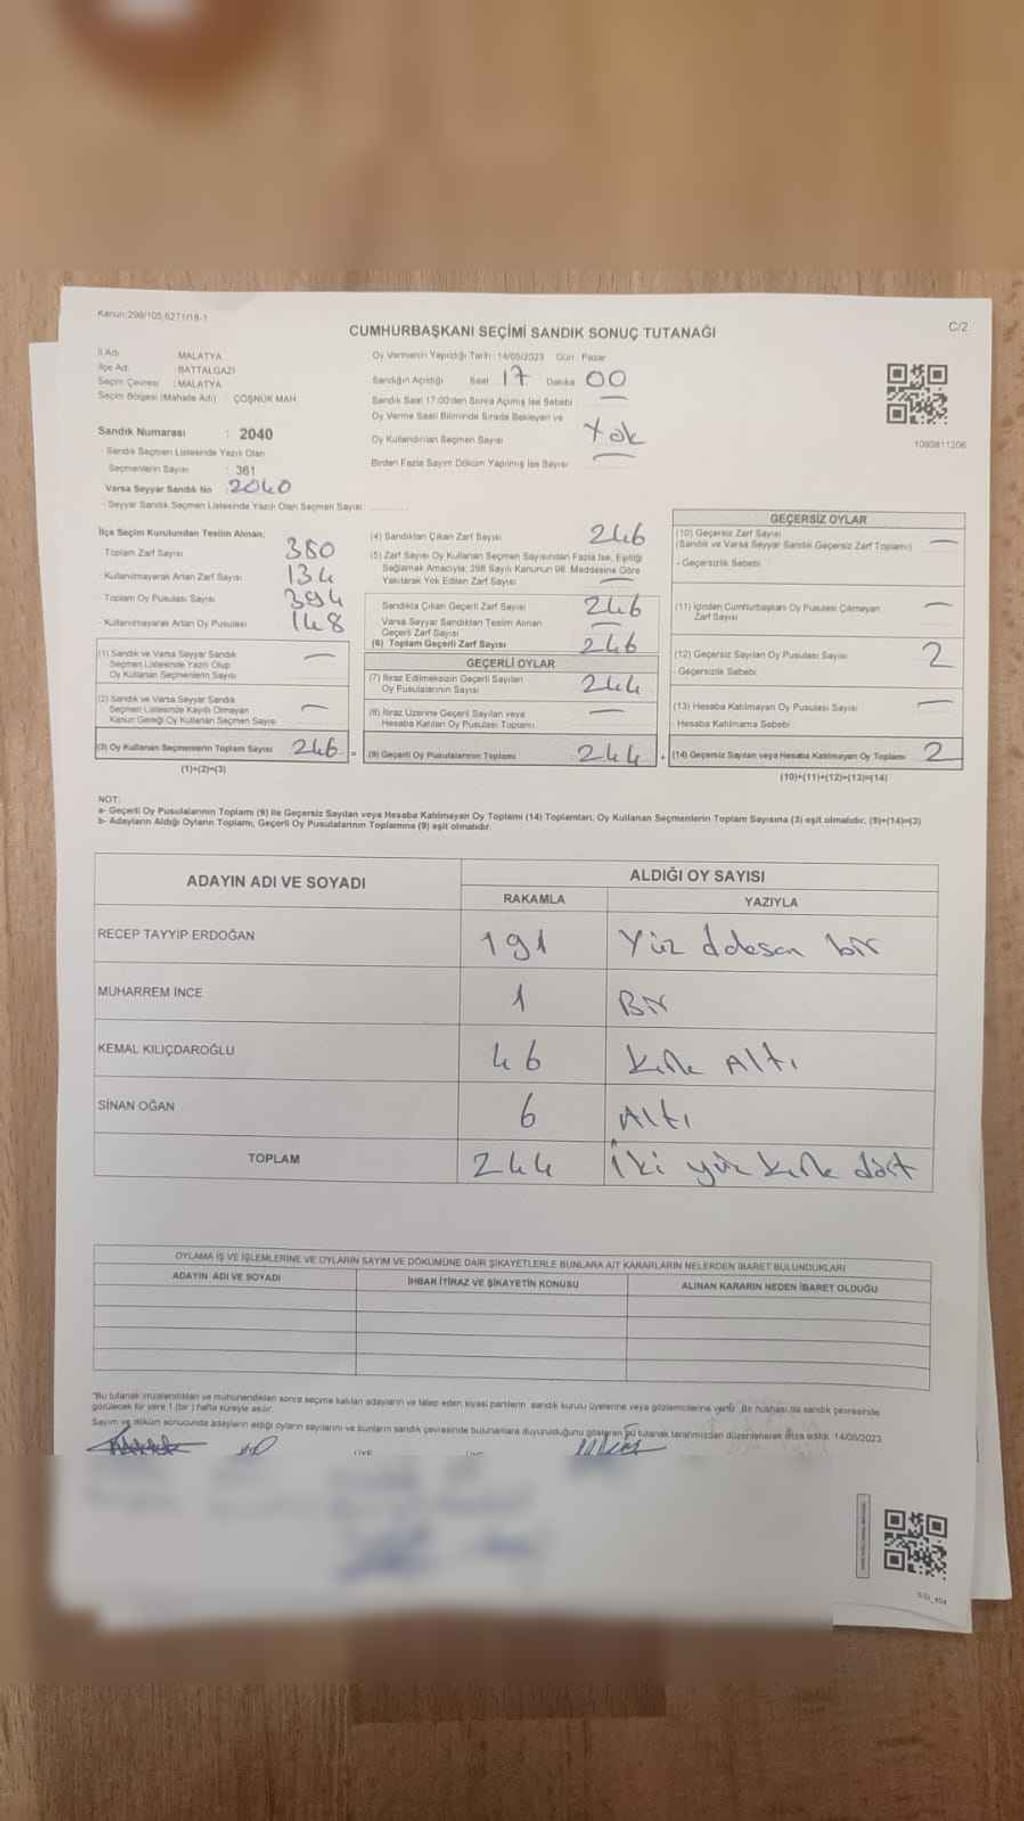 Kanun:298/105,6271/18-1
CUMHURBAŞKANI SEÇİMİ SANDIK SONUÇ TUTANAĞI
C/2
İl Adı : MALATYA
İlçe Adı : BATTALGAZİ
Seçim Çevresi : MALATYA
Seçim Bölgesi (Mahalle Adı) : ÇÖŞNÜK MAH.
Sandık Numarası : 2040
- Sandık Seçmen Listesinde Yazılı Olan
Seçmenlerin Sayısı : 361
Varsa Seyyar Sandık No 2040
- Seyyar Sandık Seçmen Listesinde Yazılı Olan Seçmen Sayısı :
Oy Vermenin Yapıldığı Tarih : 14/05/2023 Gün : Pazar
Sandığın Açıldığı Saat 17 Dakika 00
Sandık Saat 17:00'den Sonra Açılmış İse Sebebi —
Oy Verme Saati Bitiminde Sırada Bekleyen ve
Oy Kullandırılan Seçmen Sayısı Yok
Birden Fazla Sayım Döküm Yapılmış İse Sayısı —
1090811206
İlçe Seçim Kurulundan Teslim Alınan;
- Toplam Zarf Sayısı 380
- Kullanılmayarak Artan Zarf Sayısı 134
- Toplam Oy Pusulası Sayısı 394
- Kullanılmayarak Artan Oy Pusulası 148
(1) Sandık ve Varsa Seyyar Sandık
Seçmen Listesinde Yazılı Olup
Oy Kullanan Seçmenlerin Sayısı —
(2) Sandık ve Varsa Seyyar Sandık
Seçmen Listesinde Kayıtlı Olmayan
Kanun Gereği Oy Kullanan Seçmen Sayısı —
(3) Oy Kullanan Seçmenlerin Toplam Sayısı 246
(1)+(2)=(3)
(4) Sandıktan Çıkan Zarf Sayısı 246
(5) Zarf Sayısı Oy Kullanan Seçmen Sayısından Fazla İse, Eşitliği
Sağlamak Amacıyla, 298 Sayılı Kanunun 98. Maddesine Göre
Yakılarak Yok Edilen Zarf Sayısı —
Sandıkta Çıkan Geçerli Zarf Sayısı 246
Varsa Seyyar Sandıktan Teslim Alınan
Geçerli Zarf Sayısı —
(6) Toplam Geçerli Zarf Sayısı 246
GEÇERLİ OYLAR
(7) İtiraz Edilmeksizin Geçerli Sayılan
Oy Pusulalarının Sayısı 244
(8) İtiraz Üzerine Geçerli Sayılan veya
Hesaba Katılan Oy Pusulası Toplamı —
(9) Geçerli Oy Pusulalarının Toplamı 244
GEÇERSİZ OYLAR
(10) Geçersiz Zarf Sayısı
(Sandık ve Varsa Seyyar Sandık Geçersiz Zarf Toplamı) —
- Geçersizlik Sebebi
(11) İçinden Cumhurbaşkanı Oy Pusulası Çıkmayan
Zarf Sayısı —
(12) Geçersiz Sayılan Oy Pusulası Sayısı 2
- Geçersizlik Sebebi
(13) Hesaba Katılmayan Oy Pusulası Sayısı —
- Hesaba Katılmama Sebebi
(14) Geçersiz Sayılan veya Hesaba Katılmayan Oy Toplamı 2
(10)+(11)+(12)+(13)=(14)
NOT:
a- Geçerli Oy Pusulalarının Toplamı (9) ile Geçersiz Sayılan veya Hesaba Katılmayan Oy Toplamı (14) Toplamları, Oy Kullanan Seçmenlerin Toplam Sayısına (3) eşit olmalıdır. (9)+(14)=(3)
b- Adayların Aldığı Oyların Toplamı, Geçerli Oy Pusulalarının Toplamına (9) eşit olmalıdır.
ADAYIN ADI VE SOYADI
ALDIĞI OY SAYISI
RAKAMLA YAZIYLA
RECEP TAYYİP ERDOĞAN 191 Yüz ddosan bir
MUHARREM İNCE 1 Bir
KEMAL KILIÇDAROĞLU 46 Kırk Altı
SİNAN OĞAN 6 Altı
TOPLAM 244 İki yüz kırk dört
OYLAMA İŞ VE İŞLEMLERİNE VE OYLARIN SAYIM VE DÖKÜMÜNE DAİR ŞİKAYETLERLE BUNLARA AİT KARARLARIN NELERDEN İBARET BULUNDUKLARI
ADAYIN ADI VE SOYADI İHBAR İTİRAZ VE ŞİKAYETİN KONUSU ALINAN KARARIN NEDEN İBARET OLDUĞU
"Bu tutanak imzalandıktan ve mühürlendikten sonra seçime katılan adayların ve talep eden siyasi partilerin sandık kurulu üyelerine veya gözlemcilerine verilir. Bir nüshası da sandık çevresinde
görülecek bir yere 1 (bir) hafta süreyle asılır.
Sayım ve döküm sonucunda adayların aldığı oyların sayılarını ve bunların sandık çevresinde bulunanlara duyurulduğunu gösteren bu tutanak tarafımızdan düzenlenerek imza edildi. 14/05/2023